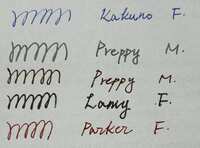 Kakuno F.
Preppy M.
Preppy M.
Lamy F.
Parker F.